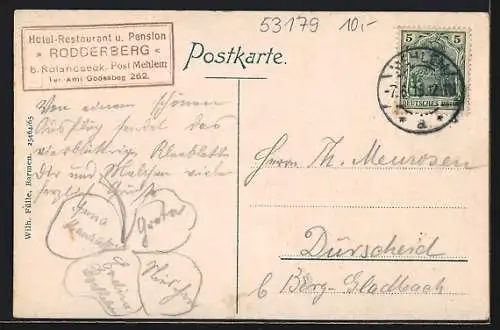 53179 10,-
Hotel-Restaurant u. Pension
» RODDERBERG «
b. Rolandseck, Post Mehlem
Tel. Amt Godesberg 262.
Postkarte.
5 5
DEUTSCHES REICH
MEHLEM
a
Von einem schönen
Ausflug sendet das
vierblättrige Kleeblatt
Dir und Malchen viele
herzlich Grüße
Anna
Grete
Wilh. Fülle, Barmen. 2546465
Herrn Th. Meurosen
Dürscheid
b Berg-Gladbach